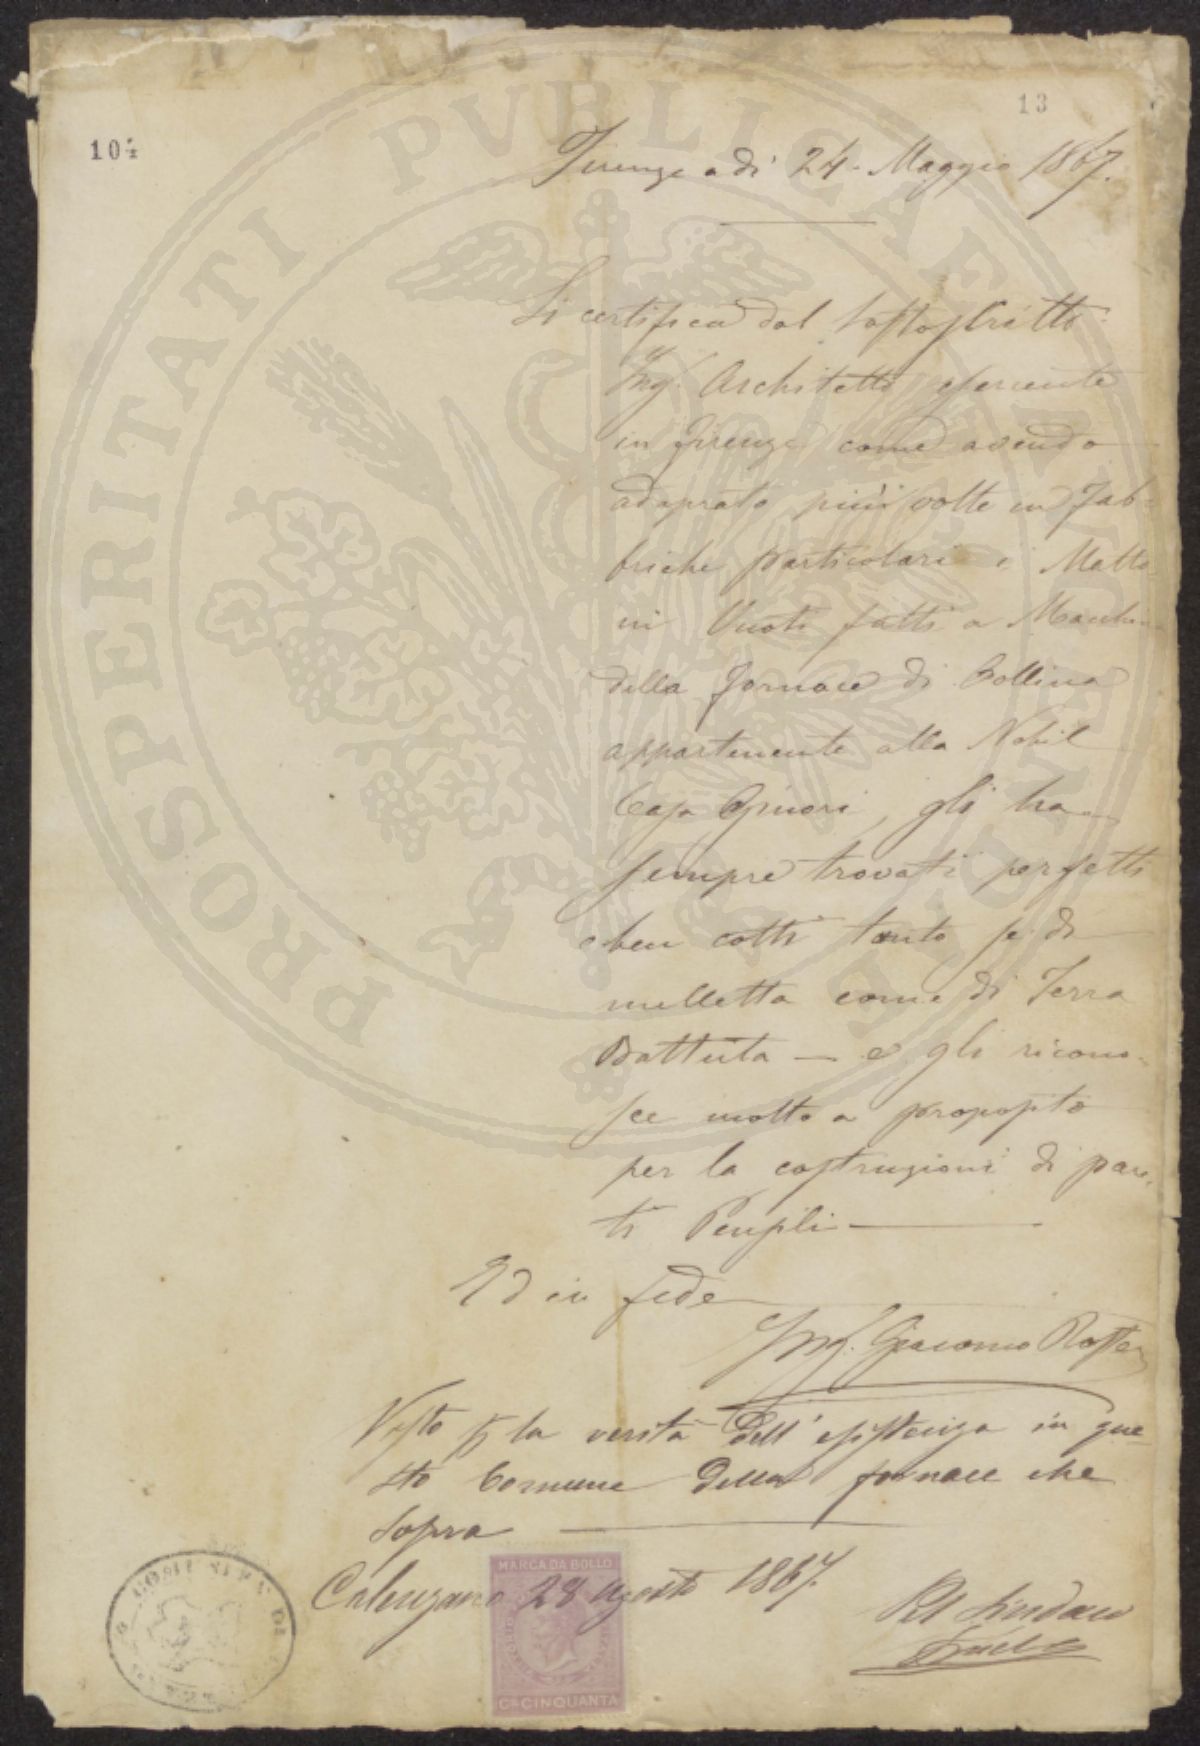 13
104
Firenze a dì 24. Maggio 1867.
Si certifica dal sottoscritto
Ing. Architetto esercente
in Firenze come avendo
adoprato più volte in Fab-
briche particolari i Matto-
ni Vuoti fatti a Macchi
della Fornace di Collina
appartenente alla Nobil
Casa Ginori, gli ha
sempre trovati perfetti
e ben cotti tanto se di
melletta come di Terra
Battuta — e gli ricono-
sce molto a proposito
per la costruzioni di pare-
ti
Ed in fede
Ing. Giacomo Roster
Visto p la verità dell' esistenza in que-
sto Comune della fornace che
sopra
Calenzano 28 Agosto 1867.
Pel Sindaco
MARCA DA BOLLO
Cmi CINQUANTA
COMUNITA DI
PROSPERITATI PVBLICAE AVGENDAE